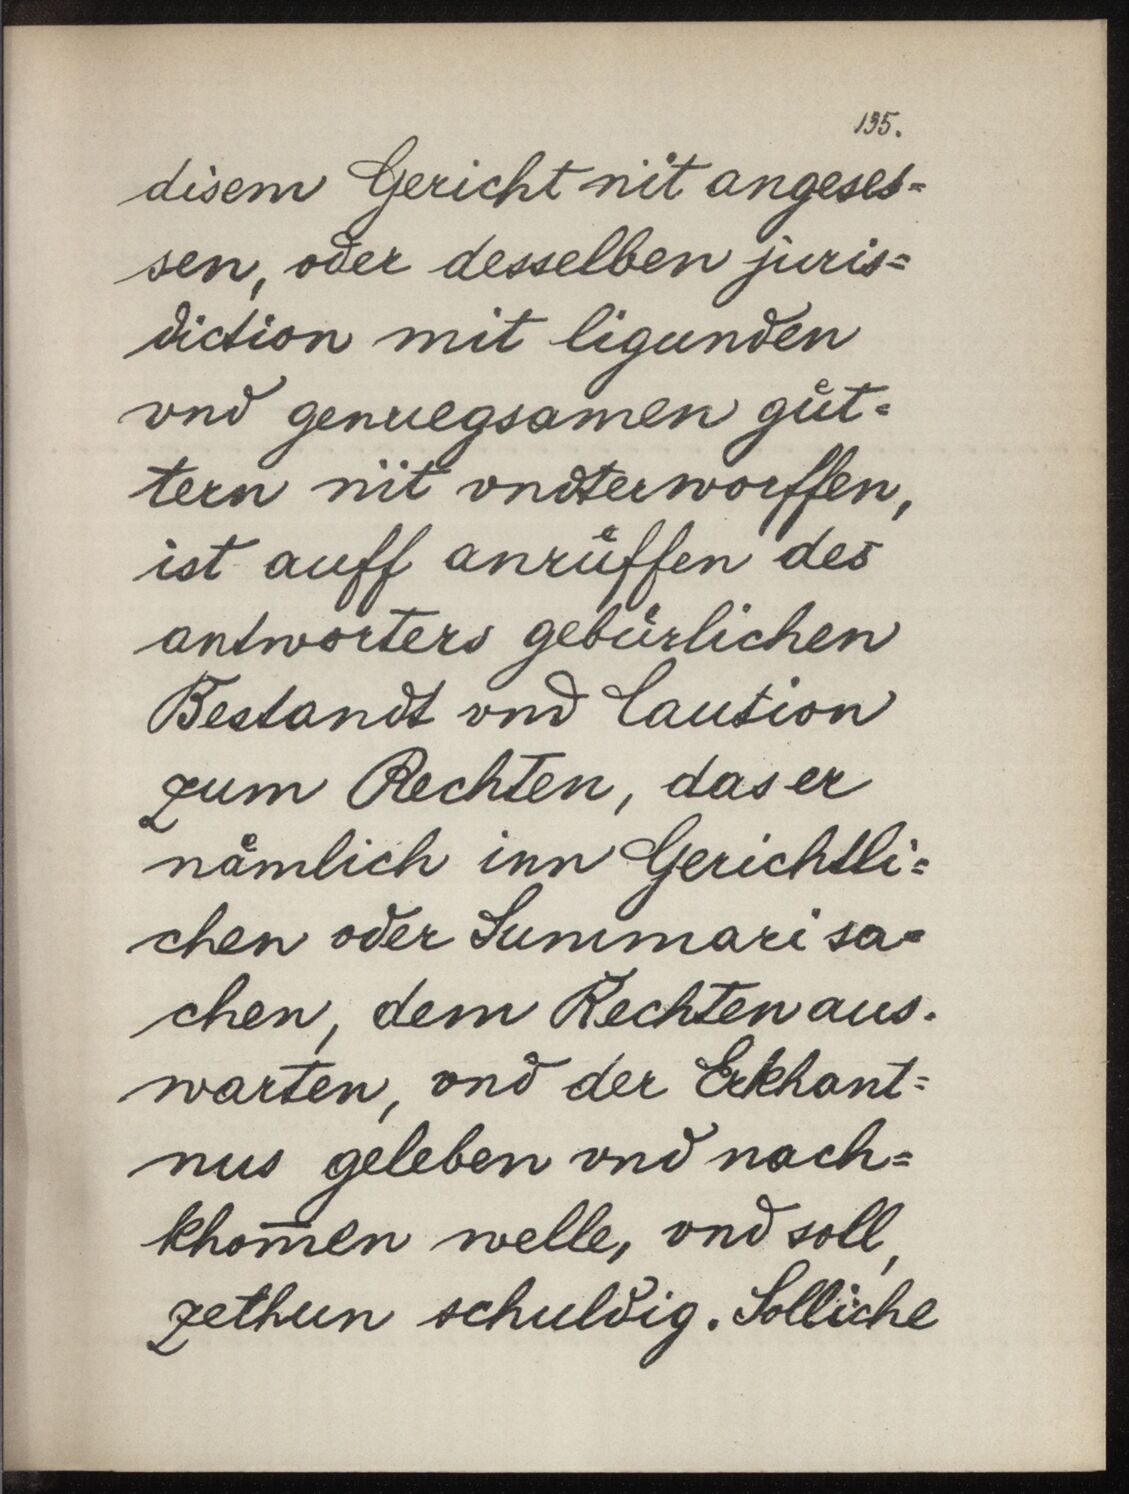 135.
disem Gericht nit angeses=
sen, oder desselben juris=
diction mit ligunden
vnd genuegsamen gůt=
tern nit vndterworffen,
ist auff anrůffen des
antworters gebürlichen
Bestandt vnd Caution
zum Rechten, das er
nåmlich inn Gerichtli=
chen oder Summari sa=
chen, dem Rechten aus.
warten, vnd der Erkhant=
nus geleben vnd nach=
khom̅en welle, vnd soll,
zethun schuldig. Solliche